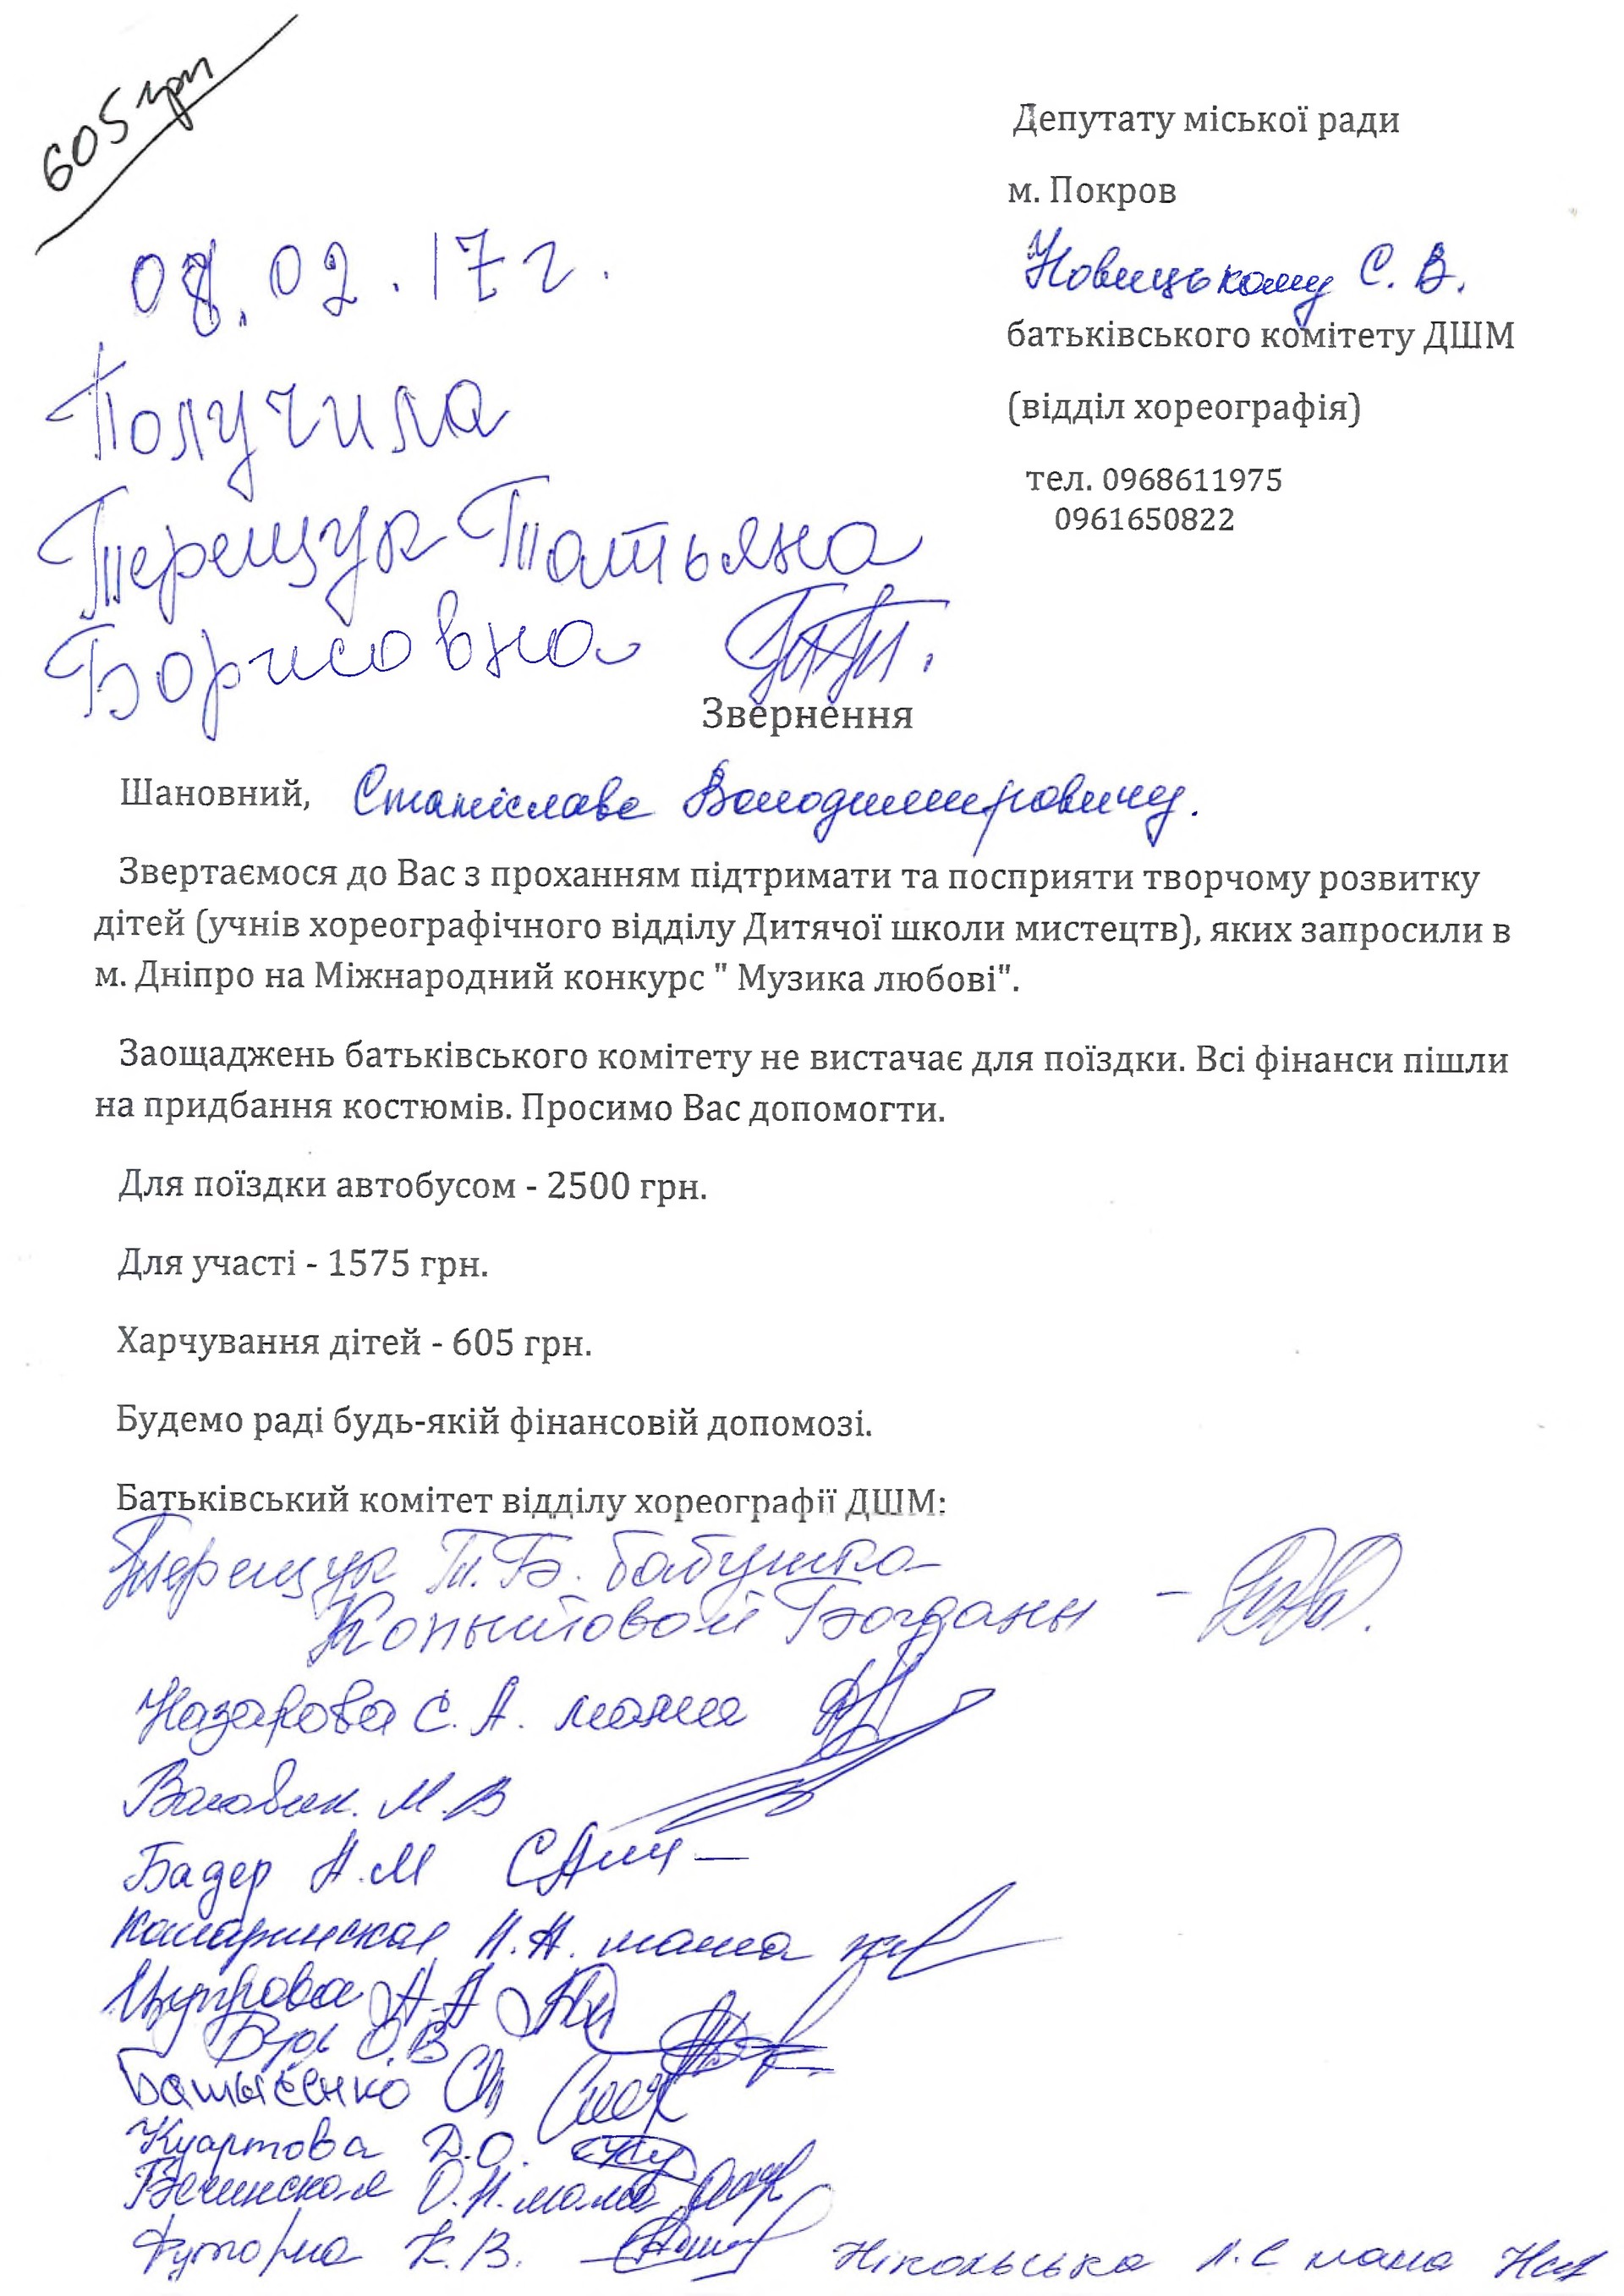 605 грн
Депутату міської ради
м. Покров
Новицькому С. В.
батьківського комітету ДШМ
(відділ хореографія)
тел. 0968611975
0961650822
08.02.17г.
Получила
Терещук Татьяна
Борисовна
Звернення
Шановний, Станіславе Володимировичу.
Звертаємося до Вас з проханням підтримати та посприяти творчому розвитку
дітей (учнів хореографічного відділу Дитячої школи мистецтв), яких запросили в
м. Дніпро на Міжнародний конкурс " Музика любові".
Заощаджень батьківського комітету не вистачає для поїздки. Всі фінанси пішли
на придбання костюмів. Просимо Вас допомогти.
Для поїздки автобусом - 2500 грн.
Для участі - 1575 грн.
Харчування дітей - 605 грн.
Будемо раді будь-якій фінансовій допомозі.
Батьківський комітет відділу хореографії ДШМ:
Терещук Т.Б. бабушка
Копытовой Богданы -
Назарова С. А. мама
М.В
Бадер Н.М
Комаринская Н.Н. мама
А.А
О.В
Куартова Д.О.
О.Н. мама
К.В.
Нікольська Л.С мама